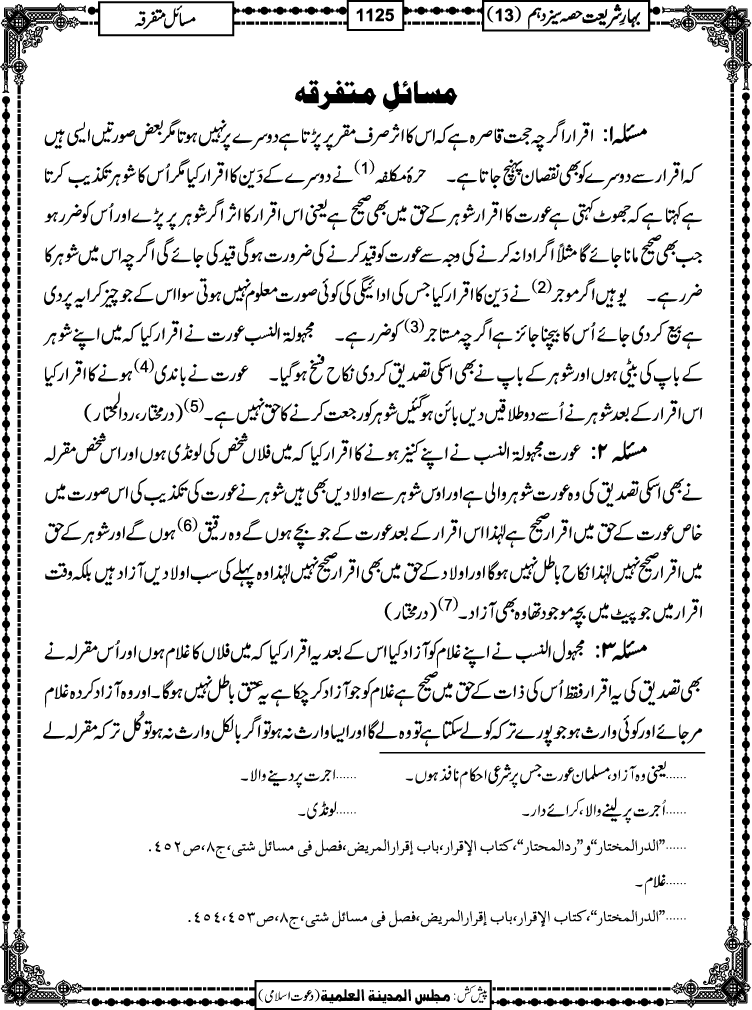 بہارِ شریعت حصہ سیزدہم (13)
1125
مسائل متفرقہ
مسائلِ متفرقہ
مسئلہ ۱: اقرار اگرچہ حجت قاصرہ ہے کہ اس کا اثر صرف مقر پر پڑتا ہے دوسرے پر نہیں ہوتا مگر بعض صورتیں ایسی ہیں
کہ اقرار سے دوسرے کو بھی نقصان پہنچ جاتا ہے۔ حرۂ مکلفہ (1) نے دوسرے کے دَین کا اقرار کیا مگر اُس کا شوہر تکذیب کرتا
ہے کہتا ہے کہ جھوٹ کہتی ہے عورت کا اقرار شوہر کے حق میں بھی صحیح ہے یعنی اس اقرار کا اثر اگر شوہر پر پڑے اور اُس کو ضرر ہو
جب بھی صحیح مانا جائے گا مثلاً اگر ادا نہ کرنے کی وجہ سے عورت کو قید کرنے کی ضرورت ہوگی قید کی جائے گی اگرچہ اس میں شوہر کا
ضرر ہے۔ یوہیں اگر موجر (2) نے دَین کا اقرار کیا جس کی ادائیگی کی کوئی صورت معلوم نہیں ہوتی سوا اس کے جو چیز کرایہ پر دی
ہے بیع کردی جائے اُس کا بیچنا جائز ہے اگرچہ مستاجر (3) کو ضرر ہے۔ مجہولۃ النسب عورت نے اقرار کیا کہ میں اپنے شوہر
کے باپ کی بیٹی ہوں اور شوہر کے باپ نے بھی اسکی تصدیق کردی نکاح فسخ ہوگیا۔ عورت نے باندی (4) ہونے کا اقرار کیا
اس اقرار کے بعد شوہر نے اُسے دو طلاقیں دیں بائن ہوگئیں شوہر کو رجعت کرنے کا حق نہیں ہے۔ (5) (درمختار، ردالمحتار)
مسئلہ ۲: عورت مجہولۃ النسب نے اپنے کنیز ہونے کا اقرار کیا کہ میں فلاں شخص کی لونڈی ہوں اور اس شخص مقرلہ
نے بھی اسکی تصدیق کی وہ عورت شوہر والی ہے اور اوس شوہر سے اولادیں بھی ہیں شوہر نے عورت کی تکذیب کی اس صورت میں
خاص عورت کے حق میں اقرار صحیح ہے لہٰذا اس اقرار کے بعد عورت کے جو بچے ہوں گے وہ رقیق (6) ہوں گے اور شوہر کے حق
میں اقرار صحیح نہیں لہٰذا نکاح باطل نہیں ہوگا اور اولاد کے حق میں بھی اقرار صحیح نہیں لہٰذا وہ پہلے کی سب اولادیں آزاد ہیں بلکہ وقت
اقرار میں جو پیٹ میں بچہ موجود تھا وہ بھی آزاد۔ (7) (درمختار)
مسئلہ ۳: مجہول النسب نے اپنے غلام کو آزاد کیا اس کے بعد یہ اقرار کیا کہ میں فلاں کا غلام ہوں اور اُس مقرلہ نے
بھی تصدیق کی یہ اقرار فقط اُس کی ذات کے حق میں صحیح ہے غلام کو جو آزاد کرچکا ہے یہ عتق باطل نہیں ہوگا۔ اور وہ آزاد کردہ غلام
مرجائے اور کوئی وارث ہو جو پورے ترکہ کو لے سکتا ہے تو وہ لے گا اور ایسا وارث نہ ہو تو اگر بالکل وارث نہ ہو تو کُل ترکہ مقرلہ لے
......یعنی وہ آزاد، مسلمان عورت جس پر شرعی احکام نافذ ہوں۔ ......اجرت پر دینے والا۔
......اُجرت پر لینے والا، کرائے دار۔ ......لونڈی۔
......"الدرالمختار" و "ردالمحتار"، کتاب الإقرار، باب إقرار المریض، فصل فی مسائل شتی، ج٨، ص٤٥٢.
......غلام۔
......"الدرالمختار"، کتاب الإقرار، باب إقرار المریض، فصل فی مسائل شتی، ج٨، ص٤٥٣، ٤٥٤.
پیش کش: مجلس المدینة العلمیة (دعوت اسلامی)